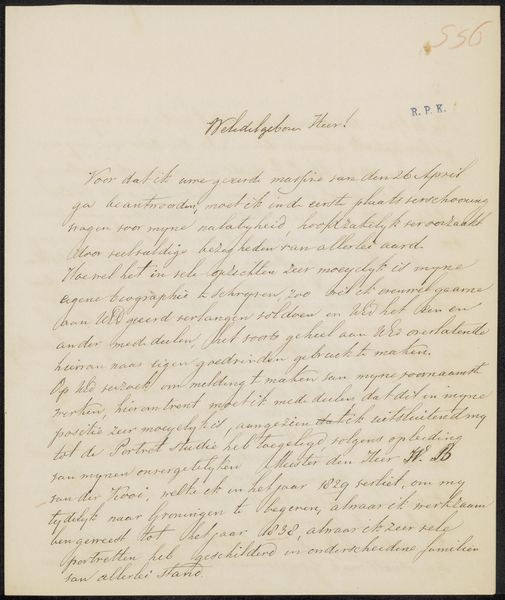 556
R. P. K.
WelEdelgeboren Heer!
Voor dat ik uwe geerde missive van den 26 April
ga beantwoorden, moet ik in de eerste plaats verschooning
vragen voor myne nalatigheid, hoofdzakelyk veroorzaakt
door veelvuldige bezigheden van allerlei aard.
Hoewel het in vele opzichten zeer moeyelyk is myne
eigene biographie te schryven, zoo wil ik evenwel gaarne
aan UEd geerd verlangen voldoen en UEd het een en
ander mededeelen, het voorts geheel aan UEd overlatende
hiervan naar eigen goedvinden gebruik te maken.
Op UEd verzoek om melding te maken van myne voornaamste
werken, hieromtrent moet ik mededeelen dat dit in myne
positie zeer moeyelyk is, aangezien ik uitsluitend my
tot de Portret studie heb toegelegd, volgens opleiding
van mynen onvergetelyken Meester den Heer W. B
van der Kooi, welke ik in het jaar 1829 verliet, om my
tydelyk naar Groningen te begeven, alwaar ik werkzaam
ben geweest tot het jaar 1838, alwaar ik zeer vele
portretten heb geschilderd in onderscheidene familien
van allerlei stand.